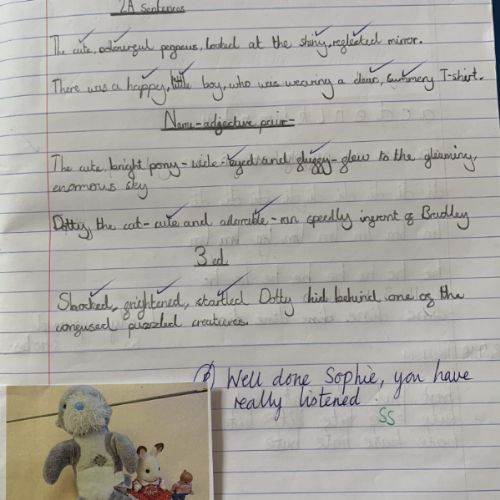 2A Sentences
The cute, colourful pegasus, looked at the shiny, reflected mirror.
There was a happy, little boy, who was wearing a clear, summery T-shirt.
Noun-adjective pair-
The cute bright pony - wide-eyed and - flew to the gleaming,
enormous sky
Dotty, the cat - cute and adorable - ran speedly infront of Bradley
3 ed
Shocked, frightened, startled Dotty hid behind one of the
confused puzzled creatures.
Well done Sophie, you have
really listened.
SS